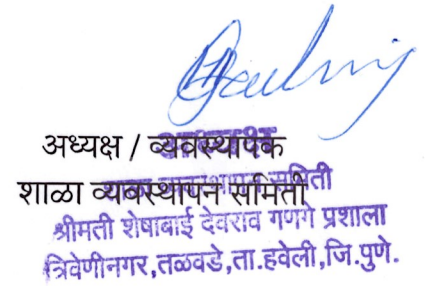 अध्यक्ष / व्यवस्थापक
शाळा व्यवस्थापन समिती
श्रीमती शेषाबाई देवराव गणगे प्रशाला
त्रिवेणीनगर,तळवडे,ता.हवेली,जि.पुणे.